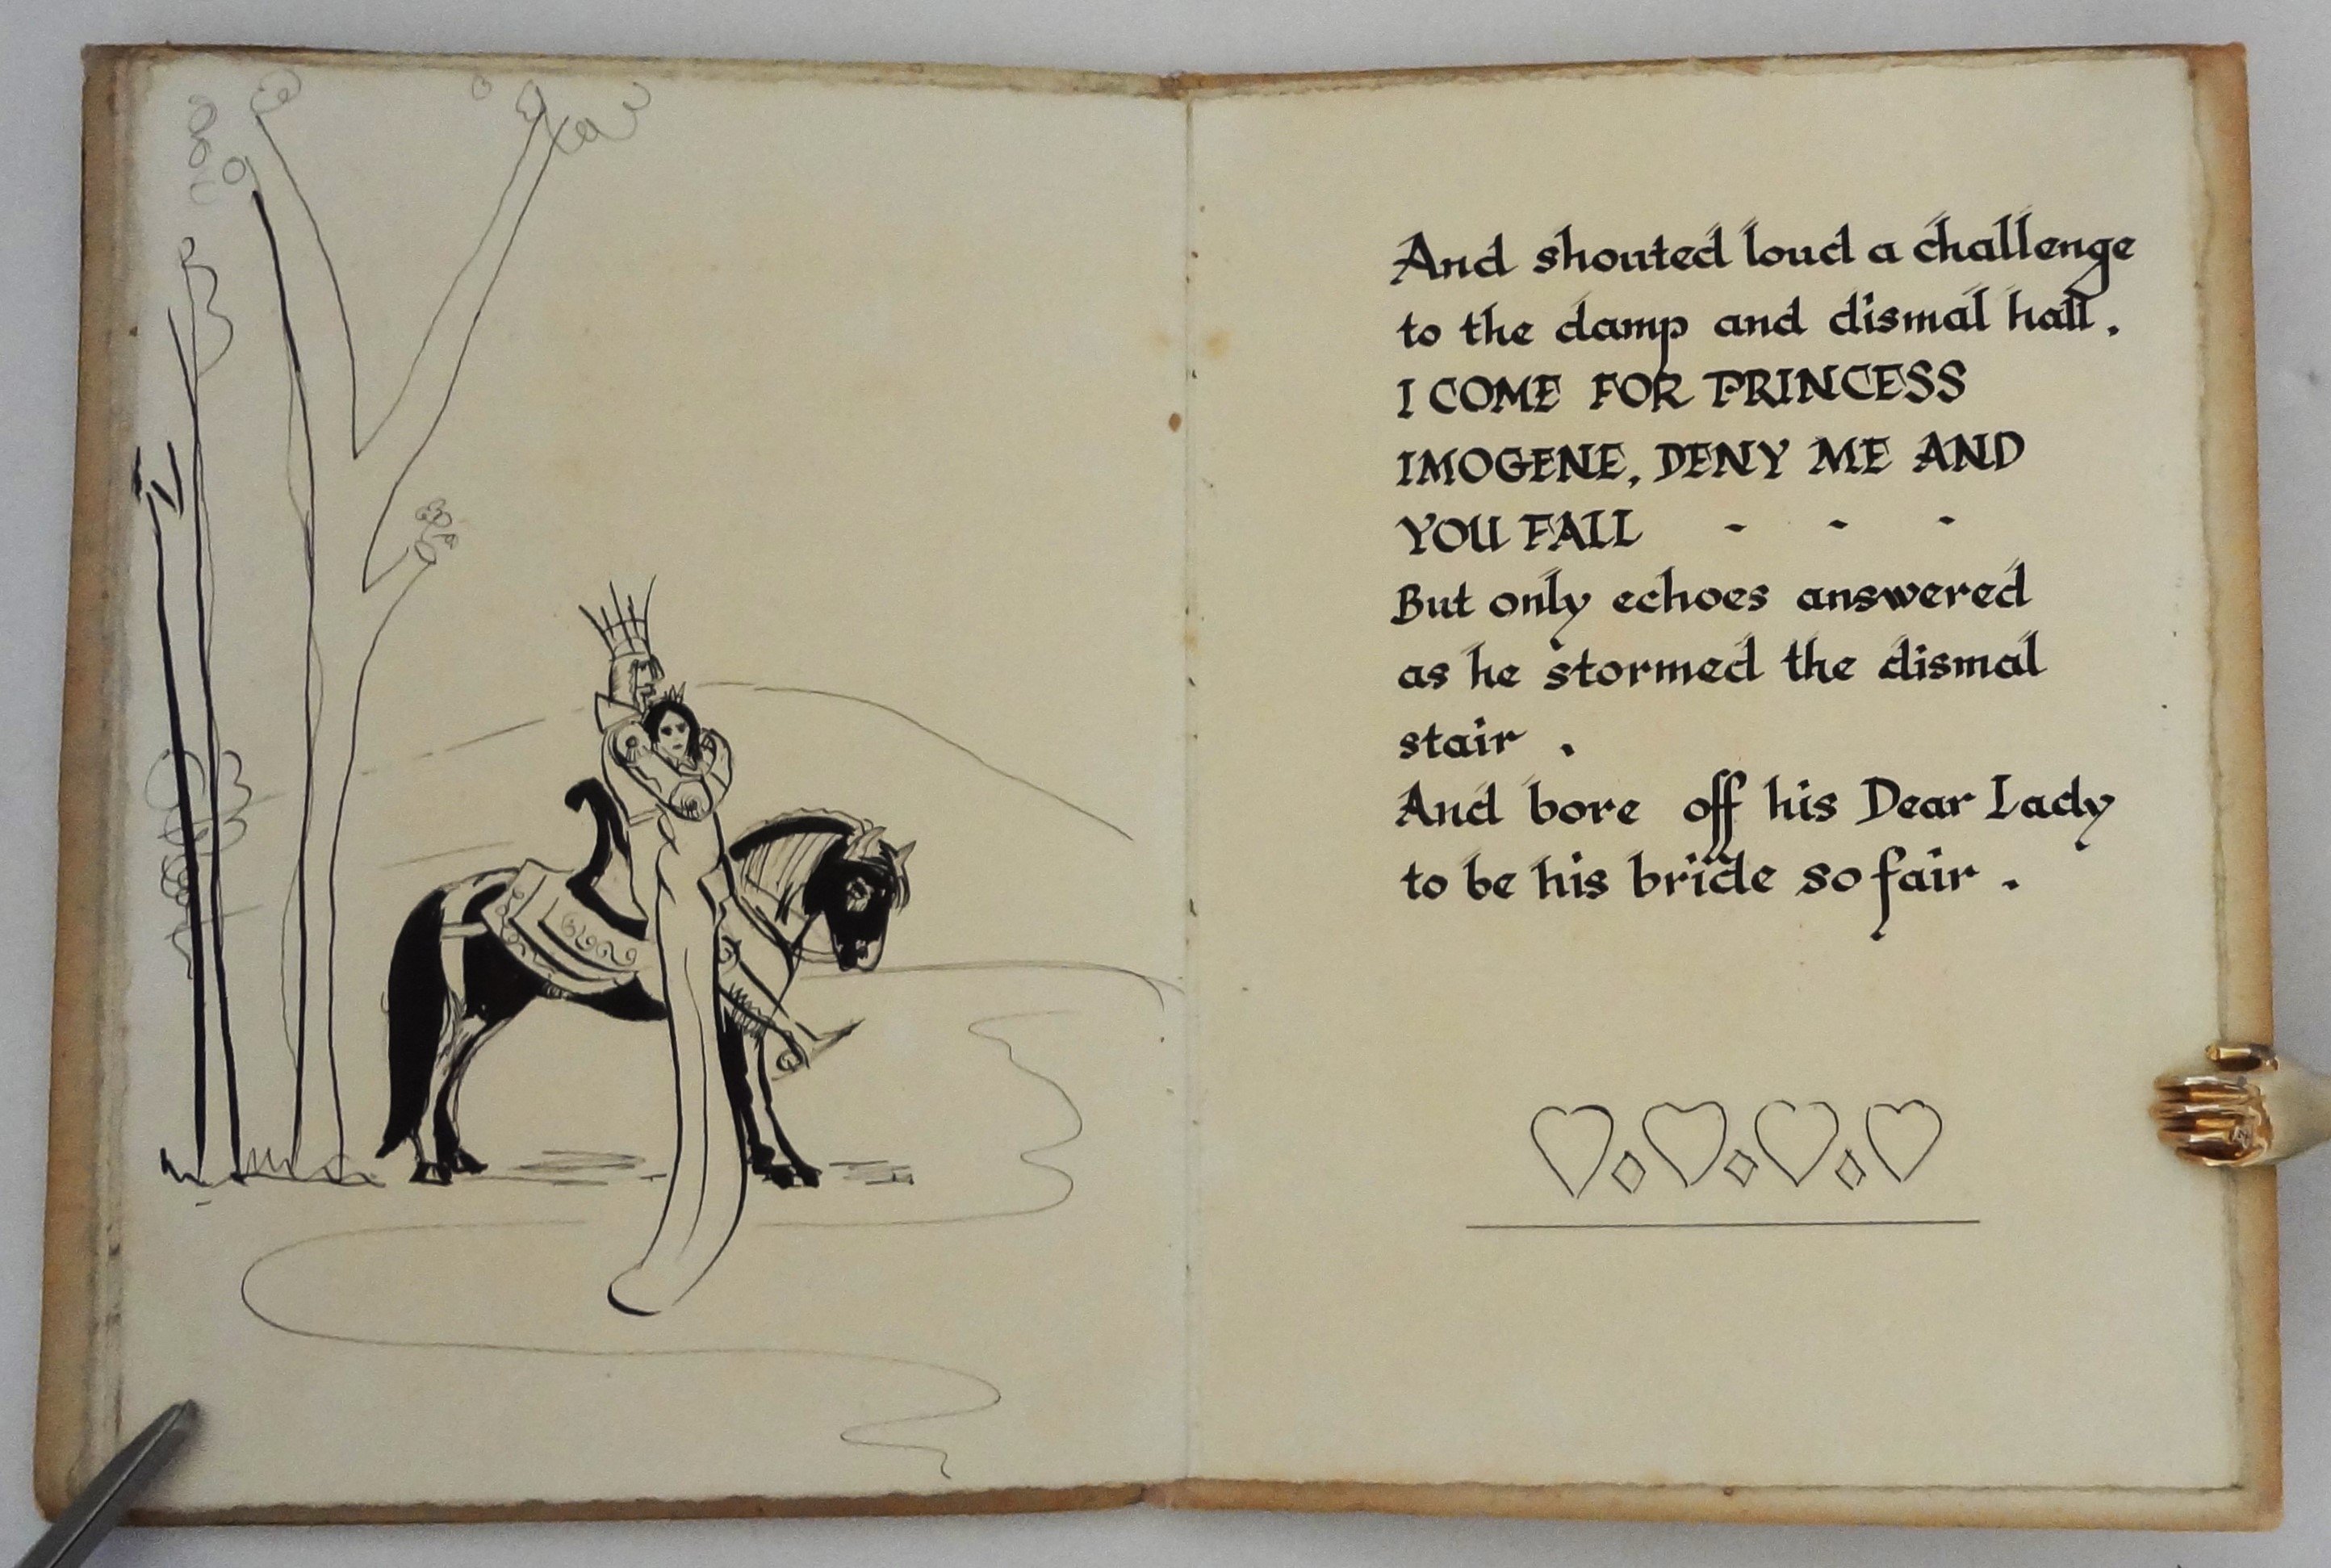 And shouted loud a challenge
to the damp and dismal hall.
I COME FOR PRINCESS
IMOGENE, DENY ME AND
YOU FALL - - -
But only echoes answered
as he stormed the dismal
stair .
And bore off his Dear Lady
to be his bride so fair .